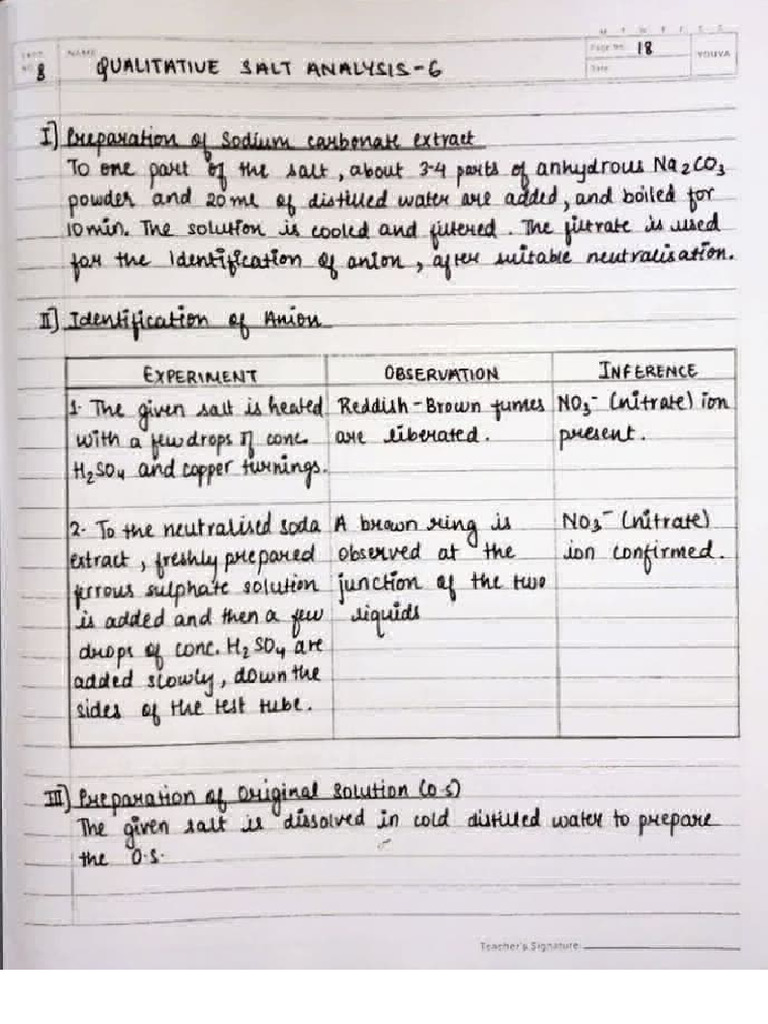 M T W T F S S
EXPT. NO. 8
NAME: QUALITATIVE SALT ANALYSIS-6
Page No. 18
Date:
YOUVA
I] Preparation of Sodium carbonate extract
To one part of the salt, about 3-4 parts of anhydrous Na₂CO₃
powder and 20ml of distilled water are added, and boiled for
10min. The solution is cooled and filtered. The filtrate is used
for the Identification of anion, after suitable neutralisation.
II] Identification of Anion
EXPERIMENT OBSERVATION INFERENCE
1. The given salt is heated
with a few drops of conc.
H₂SO₄ and copper turnings.
Reddish-Brown fumes
are liberated.
NO₃⁻ (nitrate) ion
present.
2. To the neutralised soda
extract, freshly prepared
ferrous sulphate solution
is added and then a few
drops of conc. H₂SO₄ are
added slowly, down the
sides of the test tube.
A brown ring is
observed at the
junction of the two
liquids
NO₃⁻ (nitrate)
ion confirmed.
III] Preparation of Original Solution (O.S)
The given salt is dissolved in cold distilled water to prepare
the O.S.
Teacher's Signature: